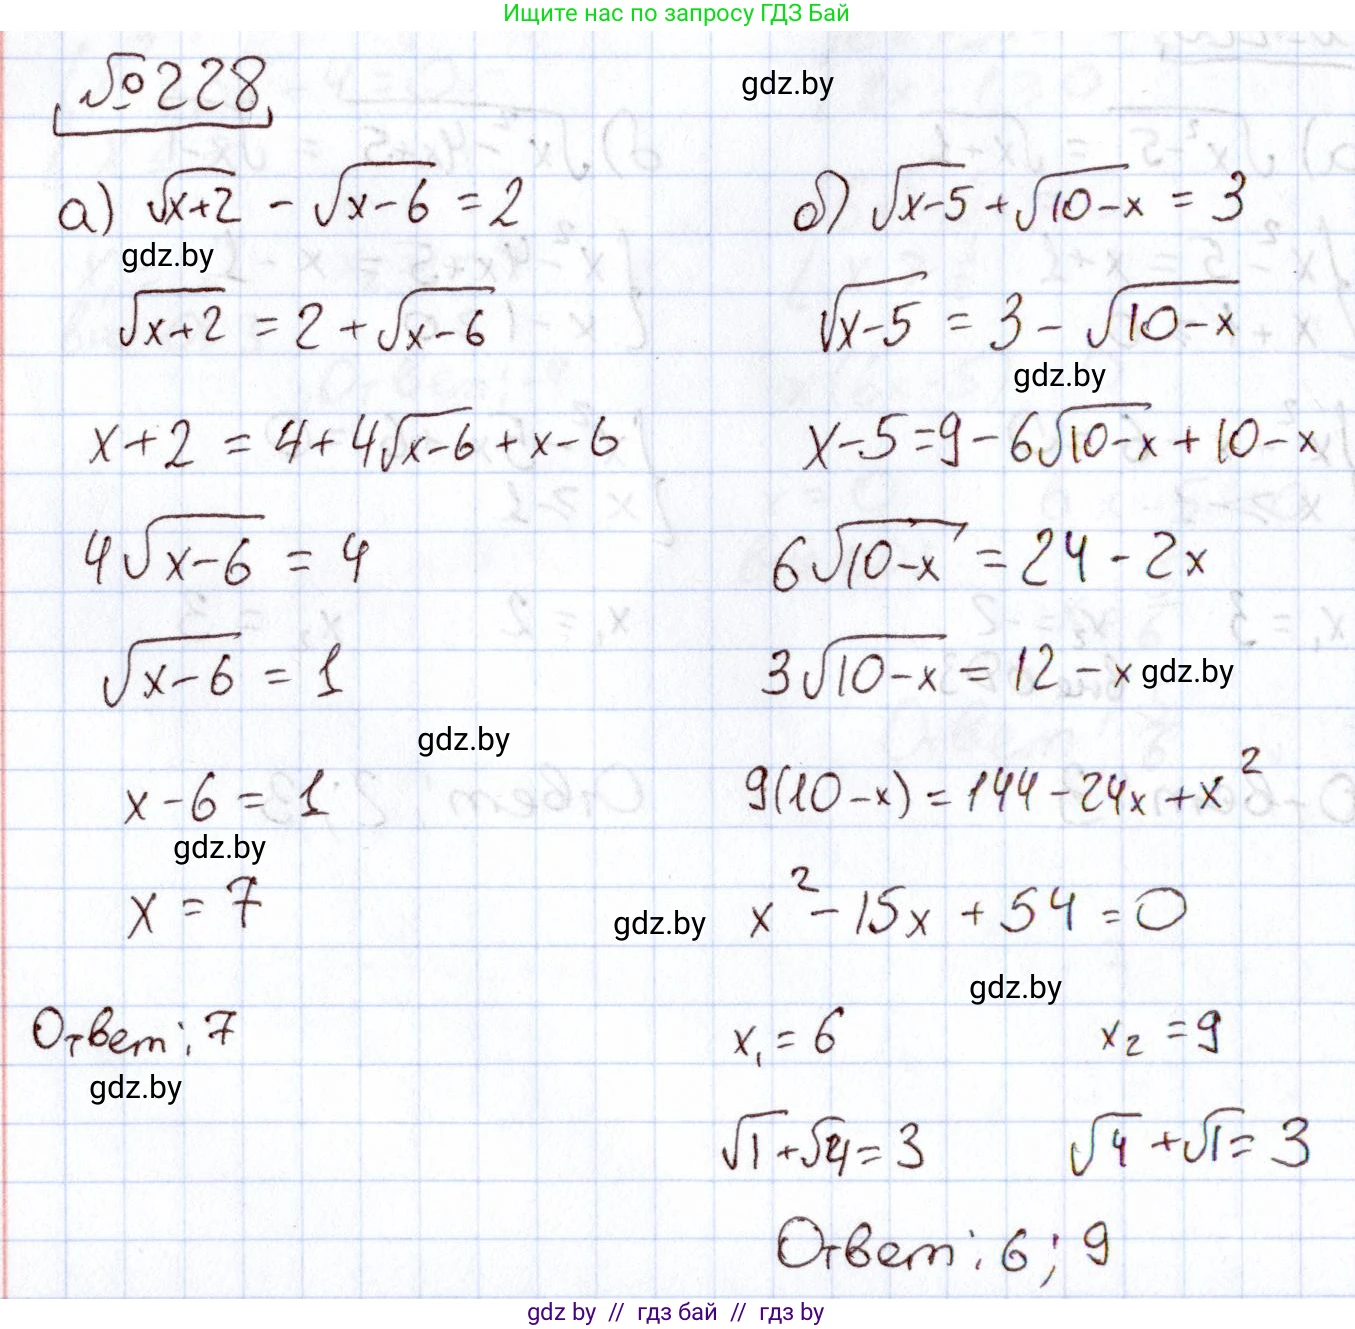 Ищите нас по запросу ГДЗ Бай
№228
gdz.by
а) √x+2 - √x-6 = 2
gdz.by
√x+2 = 2 + √x-6
x+2 = 4+4√x-6 + x-6
4√x-6 = 4
√x-6 = 1
gdz.by
x-6 = 1
gdz.by
x = 7
gdz.by
Ответ: 7
gdz.by
б) √x-5 + √10-x = 3
√x-5 = 3 - √10-x
gdz.by
x-5=9-6√10-x + 10-x
6√10-x = 24 - 2x
3√10-x = 12 - x
gdz.by
9(10-x) = 144-24x+x²
x² - 15x + 54 = 0
gdz.by
x₁ = 6 x₂ = 9
√1 + √4 = 3 √4 + √1 = 3
Ответ: 6; 9
gdz by // гдз бай // гдз by